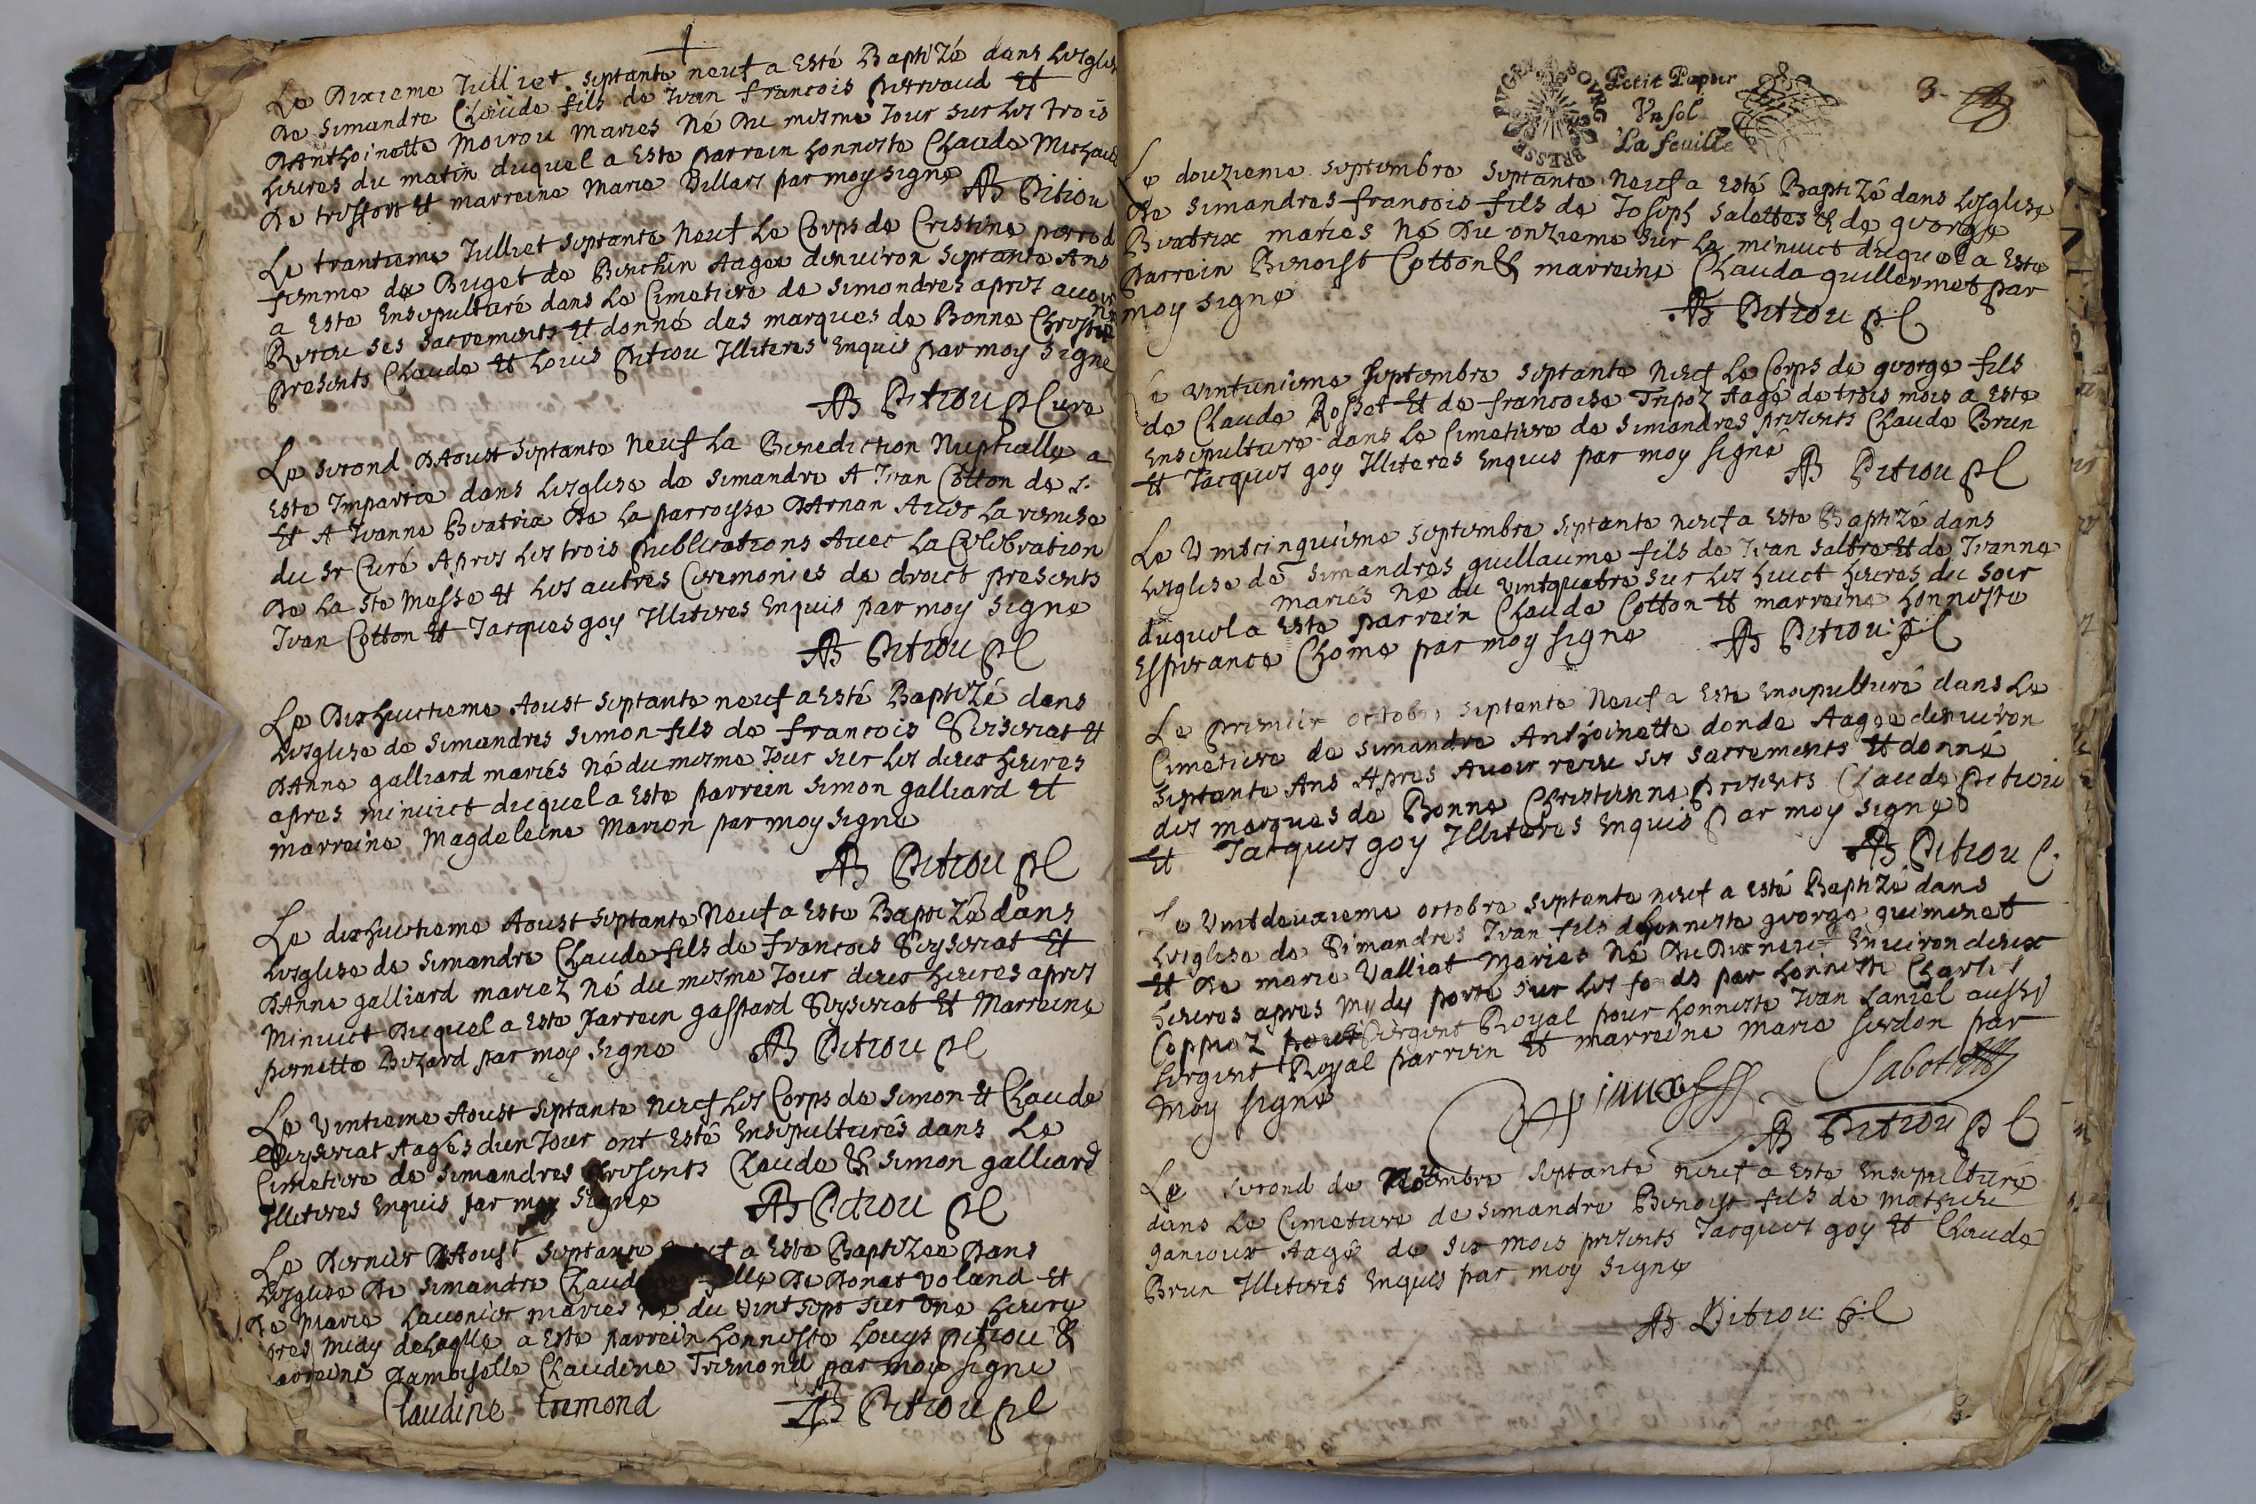 Le Dixieme Julliet septante neuf a Esté Baptizé dans Lesglise
de simandre Claude fils de Jean francois pervaud Et
DAnthoinette Moirou Maries Né Du mesme Jour sur Les trois
heures du matin duquel a Este parrein honneste Claude Michaud
de treffort Et marreine Marie Villars par moy signe
AB Pitiou
Le trantieme Julliet septante neuf Le Corps de Cristine perrod
femme de Buget de Aagee denuiron septante Ans
a Este Ensepulturé dans Le Cimetiere de simondres apres auoir
Receu ses sacrements Et donné des marques de Bonne
presents Claude Et Louis Pitiou Illiteres Enquis par moy signe
AB Pitiou p Cure
Le second DAoust septante neuf La Benediction Nuptialle a
Este Impartie dans Lesglise de simandre A Jean Cotton de s.
Et A Jeanne Beatrix De La parroisse DArnan Auec La remise
du Sr Curé Apres Les trois publications Auec La Celebration
de La Ste Messe Et Les autres Ceremonies de droict presents
Jean Cotton Et Jacques goy Illiteres Enquis par moy signe
AB Pitiou p C
Le Dixhuictieme Aoust septante neuf a Esté Baptizé dans
Lesglise de simandres simon fils de francois Et
DAnne galliard mariés Né du mesme Jour sur Les deux heures
apres minuict duquel a Este parrein simon galliard Et
marreine Magdeleine Marion par moy signe
AB Pitiou p C
Le dixhuictieme Aoust septante neuf a Este Baptizé dans
Lesglise de simandre Claude fils de francois Seyseriat Et
DAnne galliard mariez Né du mesme Jour deux heures apres
Minuict Duquel a Este parrein gaspard Seyseriat Et Marreine
pernette Bizard par moy signe
AB Pitiou p C
Le Vintieme Aoust septante neuf Les Corps de simon Et Claude
Seyseriat Aagés dun Jour ont Esté Ensepulturés dans Le
Cimetiere de simandres presents Claude & simon galliard
Illiteres Enquis par moy signe
AB Pitiou p C
Le Dernier DAoust septante a Este Baptizee Dans
Lesglise De simandre De Donat Voland Et
De Marie Lauonier maries du vintsept sur une heure
pres midy delaqlle a Este parrein honneste Louys pitiou &
arreine Damoiselle Claudine Tremond par moy signe
Claudine tremond
AB Pitiou p C
Petit Papier
Un sol
La feuille
BOURG BRESSE BUGEY
3
Le douzieme septembre septante neuf a Esté Baptizé dans Lesglise
de simandres francois fils de Joseph salettes & de george
Beatrix mariés Né Du onzieme sur La minuict duquel a Este
parrein Benoist Cotton & marreine Claude guillermet par
moy signe
AB Pitiou p C
Le vintunieme septembre septante neuf Le Corps de george fils
de Claude Rosset Et de francoise Tripoz Aagé de trois mois a Este
Ensepulture dans Le Cimetiere de simandres presents Claude Brun
Et Jacques goy Illiteres Enquis par moy signé
AB Pitiou p C
Le Vintcinquieme septembre septante neuf a Este Baptizé dans
Lesglise de simandres guillaume fils de Jean Et de Jeanne
mariés Né du vintquatre sur Les huict heures du soir
duquel a Este parrein Claude Cotton Et marreine honneste
Esperance Chome par moy signe
AB Pitiou p C
Le premier octobre septante neuf a Este Ensepulturé dans Le
Cimetiere de simandre Anthoinette donde Aagee denuiron
septante Ans Apres Auoir receu ses sacrements Et donné
des marques de Bonne Christienne presents Claude Pitiou
Et Jacques goy Illiteres Enquis par moy signe
AB Pitiou C.
Le Vintdeuxieme octobre septante neuf a Esté Baptizé dans
Lesglise de Simandres Jean fils dehonneste george guimenet
Et De marie Valliat Maries Né Du Dixneuf Enuiron deux
heures apres Mydy porté sur Les fonds par honneste Charles
Coppioz sergent Royal pour honneste Jean Laniel aussy
sergent Royal parrein Et marreine Marie serdon par
Moy signé
AB Pitiou p C
Le second de Nouembre septante neuf a Este Ensepulturé
dans Le Cimetiere de simandre Benoist fils de Mathieu
ganioux Aagé de six mois presents Jacques goy Et Claude
Brun Illiteres Enquis par moy signe
AB Pitiou p C